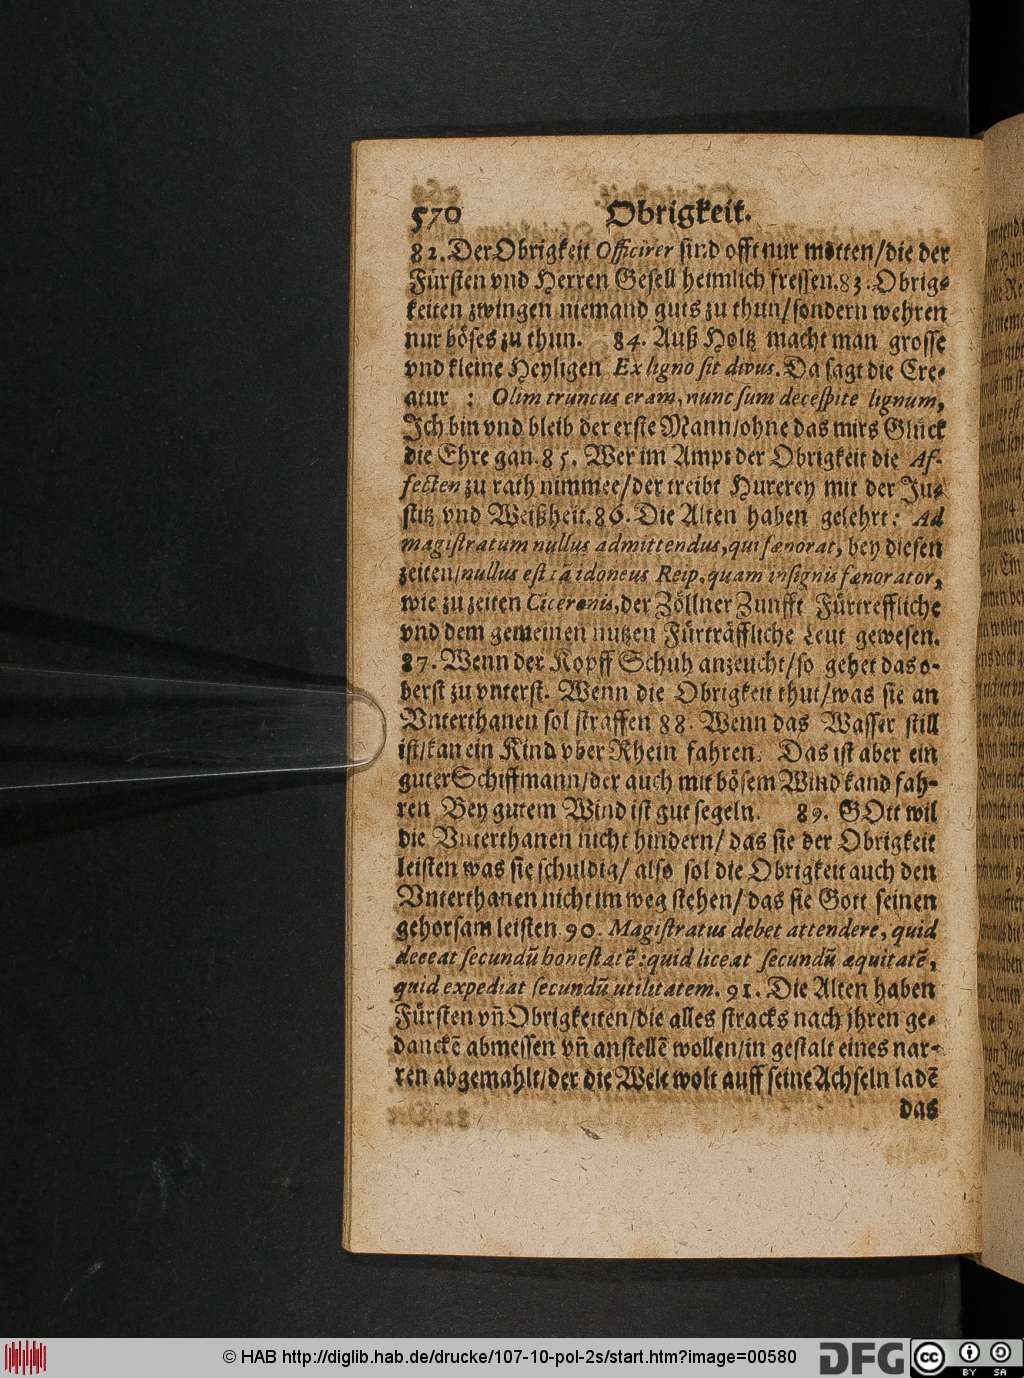 570 Obrigkeit.
82. Der Obrigkeit Officirer sind offt nur motten/die der
Fürsten vnd Herren Gesell heimlich fressen. 83. Obrig-
keiten zwingen niemand guts zu thun/sondern wehren
nur böses zu thun. 84. Auß Holtz macht man grosse
vnd kleine Heyligen Ex ligno fit divus. Da sagt die Cre-
atur : Olim truncus eram, nunc sum de cespite lignum,
Ich bin vnd bleib der erste Mann/ohne das mirs Glück
die Ehre gan. 85. Wer im Ampt der Obrigkeit die Af-
fecten zu rath nimmet/der treibt Hurerey mit der Ju-
stitz vnd Weißheit. 86. Die Alten haben gelehrt: Ad
magistratum nullus admittendus, qui fænorat, bey diesen
zeiten/nullus est tā idoneus Reip. quam insignis fænorator,
wie zu zeiten Ciceronis, der Zöllner Zunfft Fürtreffliche
vnd dem gemeinen nutzen Fürträffliche Leut gewesen.
87. Wenn der Kopff Schuh anzeucht/so gehet das o-
berst zu vnterst. Wenn die Obrigkeit thut/was sie an
Vnterthanen sol straffen 88. Wenn das Wasser still
ist/kan ein Kind vber Rhein fahren. Das ist aber ein
guter Schiffmann/der auch mit bösem Wind kand fah-
ren Bey gutem Wind ist gut segeln. 89. GOtt wil
die Vnterthanen nicht hindern/ das sie der Obrigkeit
leisten was sie schuldig/ also sol die Obrigkeit auch den
Vnterthanen nicht im weg stehen/ das sie Gott seinen
gehorsam leisten. 90. Magistratus debet attendere, quid
deceat secundū honestatē: quid liceat secundū æquitatē,
quid expediat secundū utilitatem. 91. Die Alten haben
Fürsten vñ Obrigkeiten/die alles stracks nach jhren ge-
danckē abmessen vñ anstellē wollen/in gestalt eines nar-
ren abgemahlt/der die Welt wolt auff seine Achseln ladē
das
© HAB http://diglib.hab.de/drucke/107-10-pol-2s/start.htm?image=00580
DFG
cc BY SA